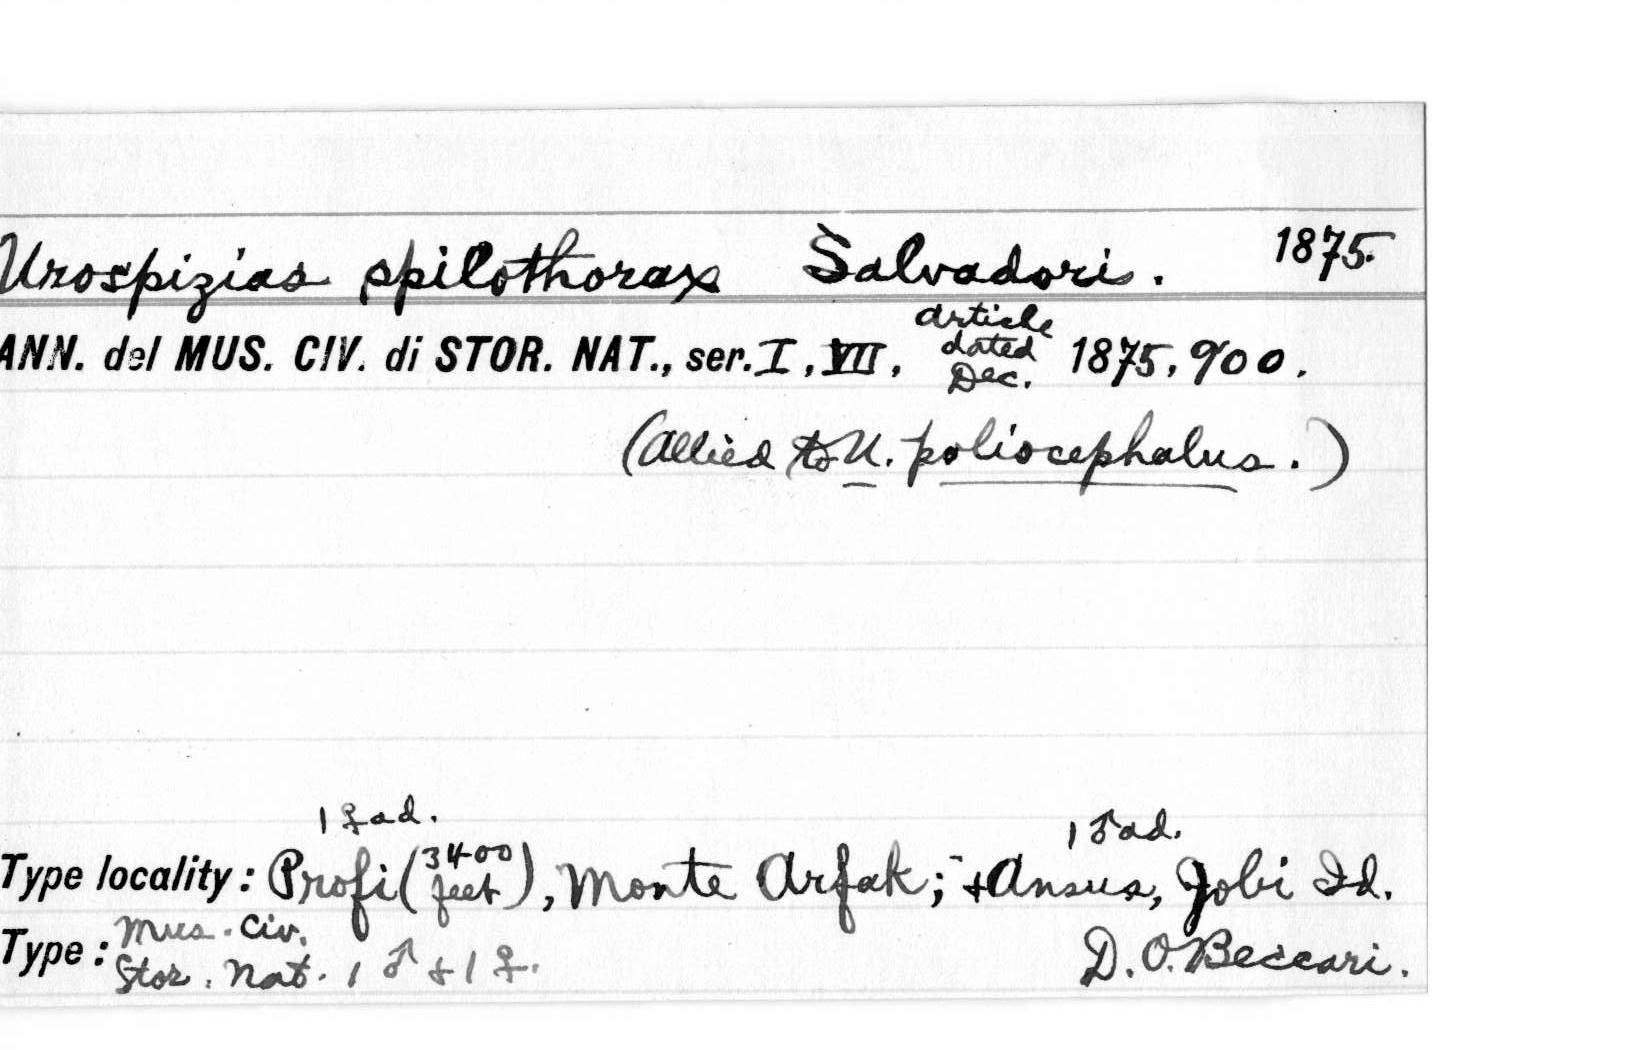 Urospizias spilothorax Salvadori. 1875.
ANN. del MUS. CIV. di STOR. NAT., ser. I, VII, article dated Dec. 1875, 900.
(Allied to U. poliocephalus.)
1 ♀ ad. 1 ♂ ad.
Type locality: Profi (3400 feet), Monte Arfak; + Ansus, Jobi Id.
Type: Mus. Civ. Stor. Nat. 1 ♂ + 1 ♀. D. O. Beccari.